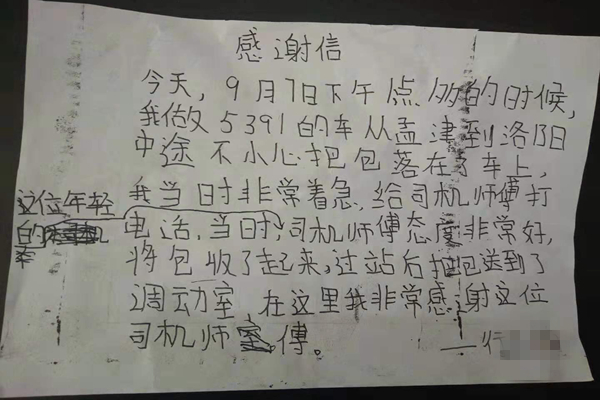 感谢信
今天,9月7日下午点多的时候,
我做5391的车从孟津到洛阳
中途不小心把包落在了车上,
我当时非常着急,给司机师傅打
这位年轻
的
电话,当时,司机师傅态度非常好,
将包收了起来,过站后把包送到了
调动室,在这里我非常感谢这位
司机师傅。